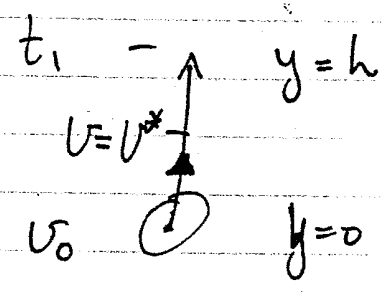 t₁ – y = h
v = v*
v₀ y = 0